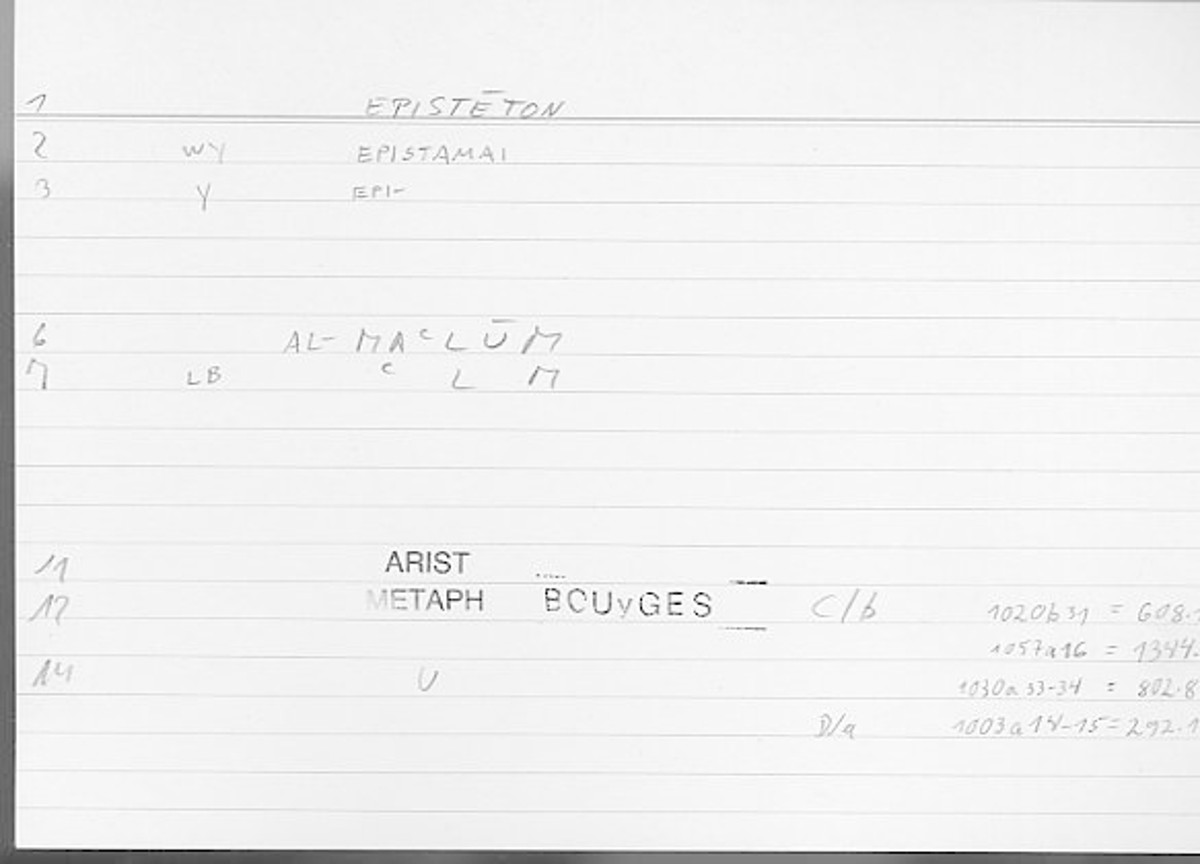 1 EPISTĒTON
2 WY EPISTAMAI
3 Y EPI-
6 AL- MAᶜLŪM
7 LB ᶜ L M
11 ARIST
12 METAPH BOUyGES C/b 1020b31 = 608.
1057a16 = 1344.
14 U 1030a33-34 = 802.8
D/a 1003a14-15=292.1